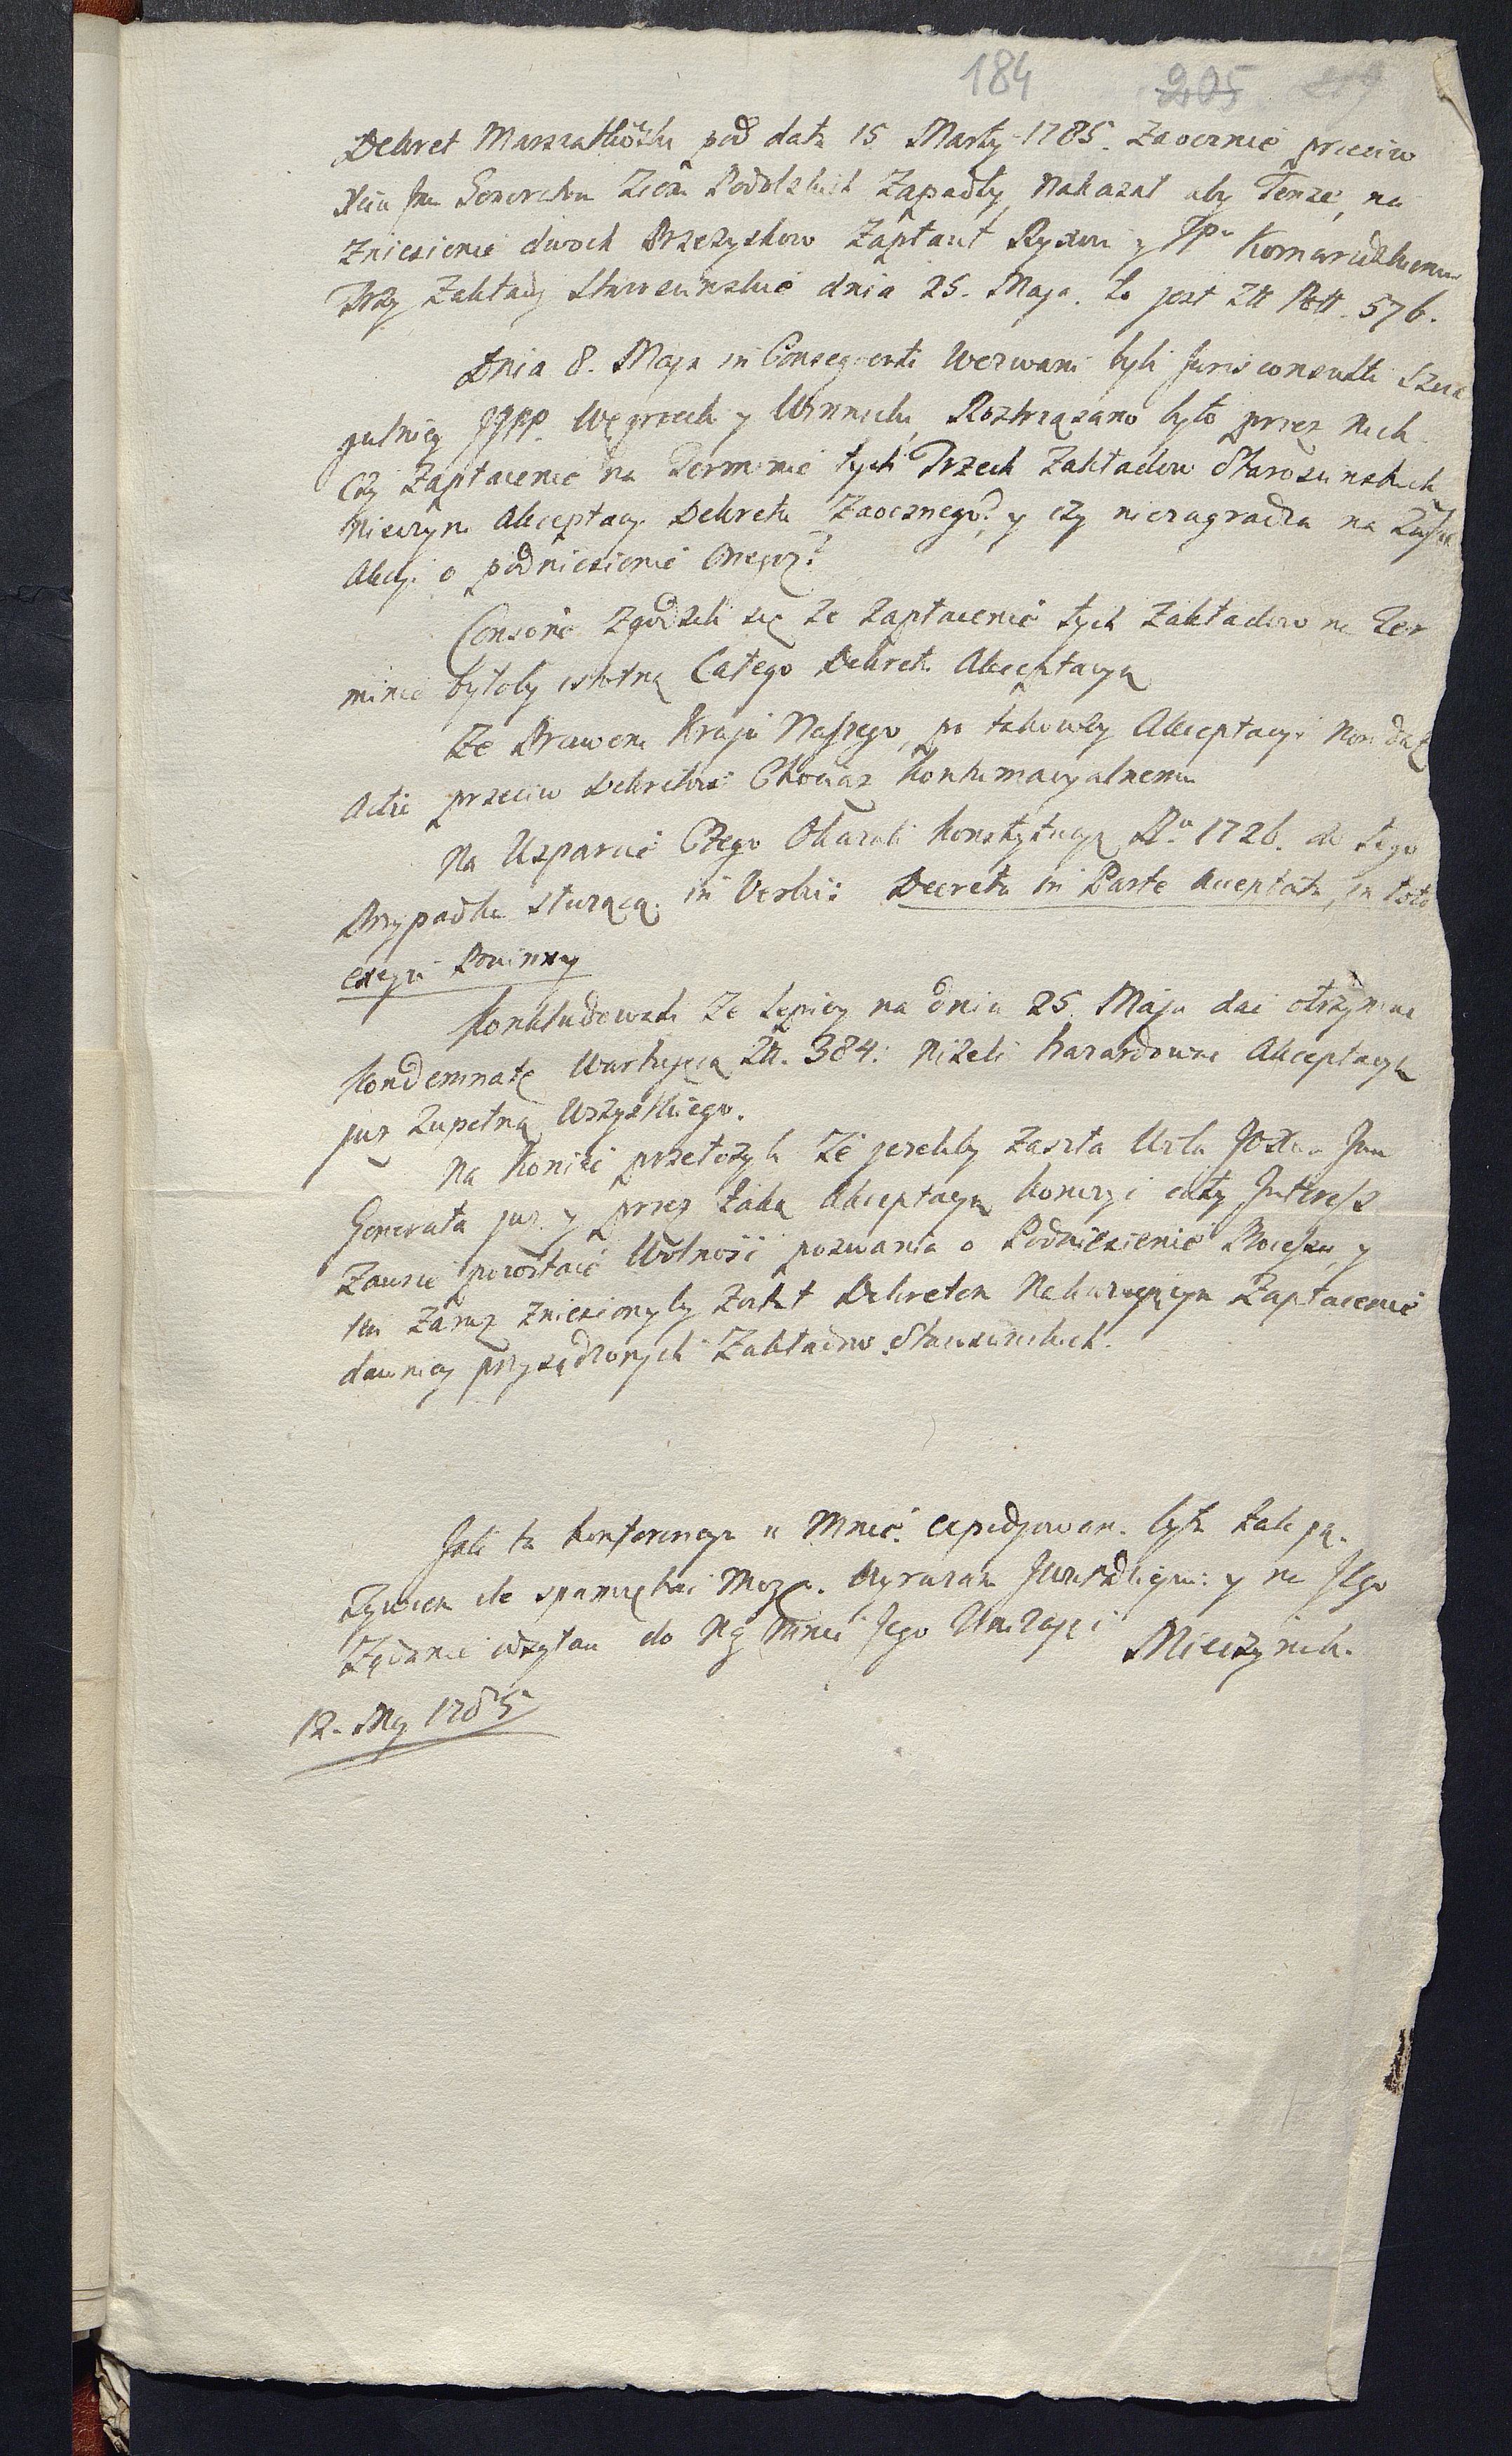 184 205 219
Dekret Marszałkoski pod datą 15 Marty 1785. Zaocznie przeciw
Xciu Jmci Generałowi Ziem Podolskich Zapadły, nakazał aby Tenże, na
Zniesienie dwoch Przezyskow Zapłacił Ryxowi y JPu Komarzewskiemu
Trzy Zakłady Starościnskie dnia 25. Maja. to jest Zł Pol. 576.
Dnia 8. Maja in Conseqventi Wezwani byli Jurisconsulti Szcze
gulniey JJPP. Węgrzecki y Winnicki, Roztrząsano było przez nich
Czy Zapłacenie na Terminie tych Trzech Zakładow Starościnskich
nieczyni Akceptacyi Dekretu Zaocznego? y czy niezagradza na Zawsze
Akcyi o podniesienie Onegoż?
Consone Zgodzili się że Zapłacenie tych Zakładow na Ter
minie byłoby istotną Całego Dekretu Akceptacyą
Że Prawem Kraju Naszego, po takowey Akceptacyi non datur
Actio przeciw Dekretowi Chociaż Kontumacyalnemu
Na Wsparcie Czego Okazali Konstytucyą Ru 1726. do tego
Przypadku służącą. in Verbis: Decreta in Parte Acceptata, in toto
exeqvi Powinny
Konkludowali Że lepiey na dniu 25. Maja dać otrzymać
Kondemnatę Wartującą Zł. 384: niżeli hazardować Akceptacyą
już Zupełną Wszystkiego.
Na Koniec przełożyli Że jeżeliby Zaszła Wola JOXcia Jmci
Generała już y przez taką Akceptacyą Kończyć cały Interess
Zawsze pozostaie Wolność pozwania o Podniesienie Procesu, y
ten Zaraz Zniesionyby Został Dekretem Nakazującym Zapłacenie
dawniey przysądzonych Zakładow Starościnskich.
Jaka ta Konferencya u Mnie expedjowana była taką
Życiem ile spamiętać Mogę. Wyrazam Juridligmi: y na Jego
Żądanie wsyłam do Rąk Mnie Jego Umiżają
Mieczynsk.
12. May 1785